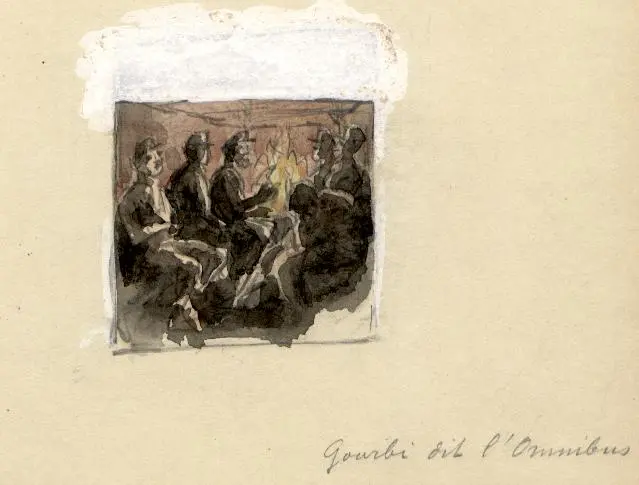 Gourbi dit l'Omnibus